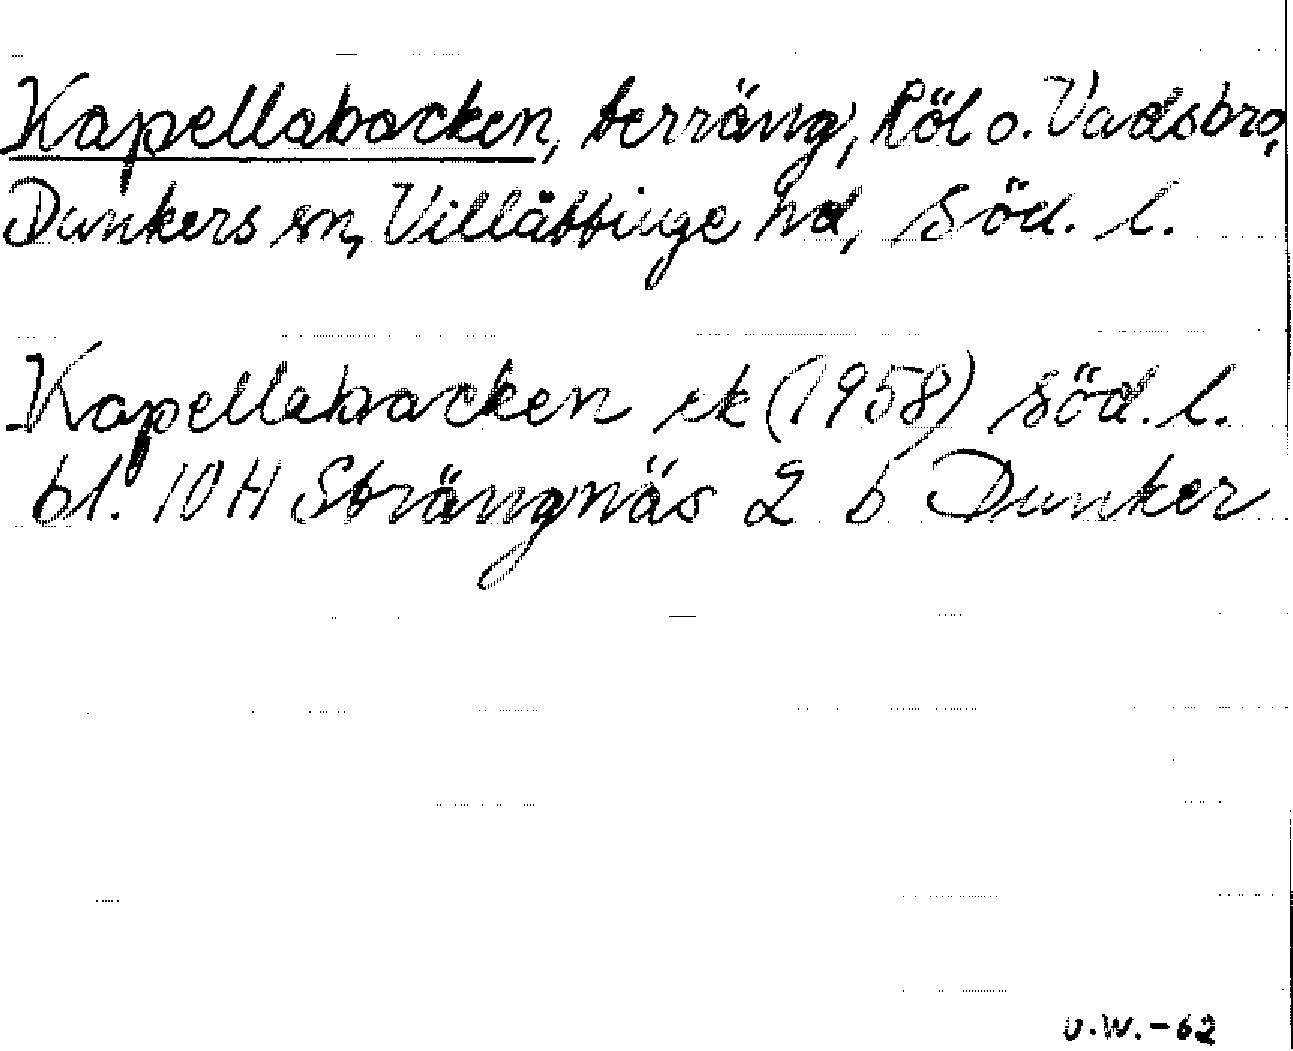 Kapellabacken, terräng, Röl o. Vadsbro,
Dunkers sn, Villåttinge hd, Söd. l.
Kapellabacken ek (1958) Söd. l.
bl. 10 H Strängnäs 2 b Dunker
U.W.-62